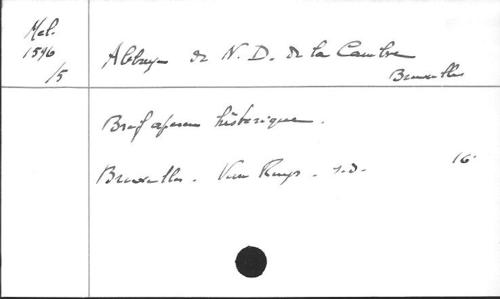 Mel.
1596
/5
Abbaye de N. D. de la Cambre
Bruxelles
Bref aperçu historique.
Bruxelles. Van Ruys. s.d. 16°